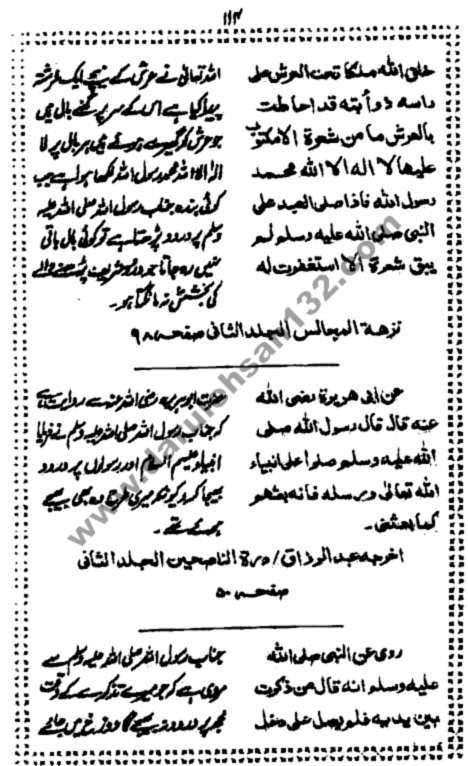 ۱۱۴
خلق الله ملكا تحت العرش على
راسه ذوأبته قد احاطت
بالعرش ما من شعرة الا مكتوب
عليها لا اله الا الله محمد
رسول الله فاذا صلى العبد على
النبي صلى الله عليه وسلم لم
يبق شعرة الا استغفرت له
اللہ تعالیٰ نے عرش کے نیچے ایک فرشتہ
پیدا کیا ہے اس کے سر پر گھنے بال ہیں
جو عرش کو گھیرے ہوئے ہیں ہر بال پر لا
الٰہ الا اللہ محمد رسول اللہ لکھا ہوا ہے جب
کوئی بندہ جناب رسول اللہ صلی اللہ علیہ
وسلم پر درود پڑھتا ہے تو کوئی بال باقی
نہیں رہ جاتا جو درود شریف پڑھنے والے
کی بخشش نہ مانگتا ہو۔
نزهة المجالس المجلد الثانى صفحہ ۹۸
عن ابى هريرة رضى الله
عنه قال قال رسول الله صلى
الله عليه وسلم صلوا على انبياء
الله تعالى ورسله فانه بعثهم
كما بعثنى۔
حضرت ابوہریرہ رضی اللہ عنہ سے روایت ہے
کہ جناب رسول اللہ صلی اللہ علیہ وسلم نے فرمایا
انبیاء علیہم السلام اور رسولوں پر درود
بھیجا کرو کیونکہ میری طرح وہ بھی بھیجے
ہوئے تھے۔
اخرجه عبد الرزاق / درة الناصحين المجلد الثانى
صفحہ ۵۰
روى عن النبى صلى الله
عليه وسلم انه قال من ذكرت
بين يديه فلم يصل على دخل
جناب رسول اللہ صلی اللہ علیہ وسلم سے
مروی ہے کہ جو میرے تذکرے کے وقت
مجھ پر درود نہ بھیجے گا دوزخ میں جائے
www.darulehsan132.com